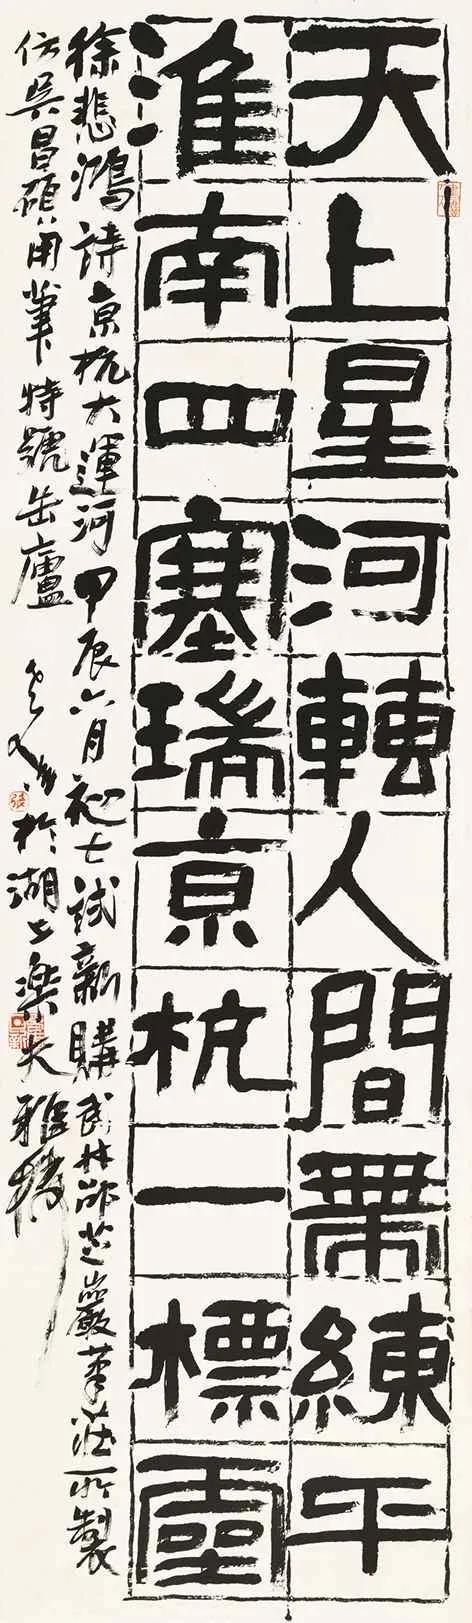 天上星河轉人間帶練平
淮南四塞瑞京杭一標靈
徐悲鴻詩京杭大運河甲辰六月初七試新購武林邵芝巖筆莊所製
仿吳昌碩用筆特號缶廬
於湖上樂天雅榭